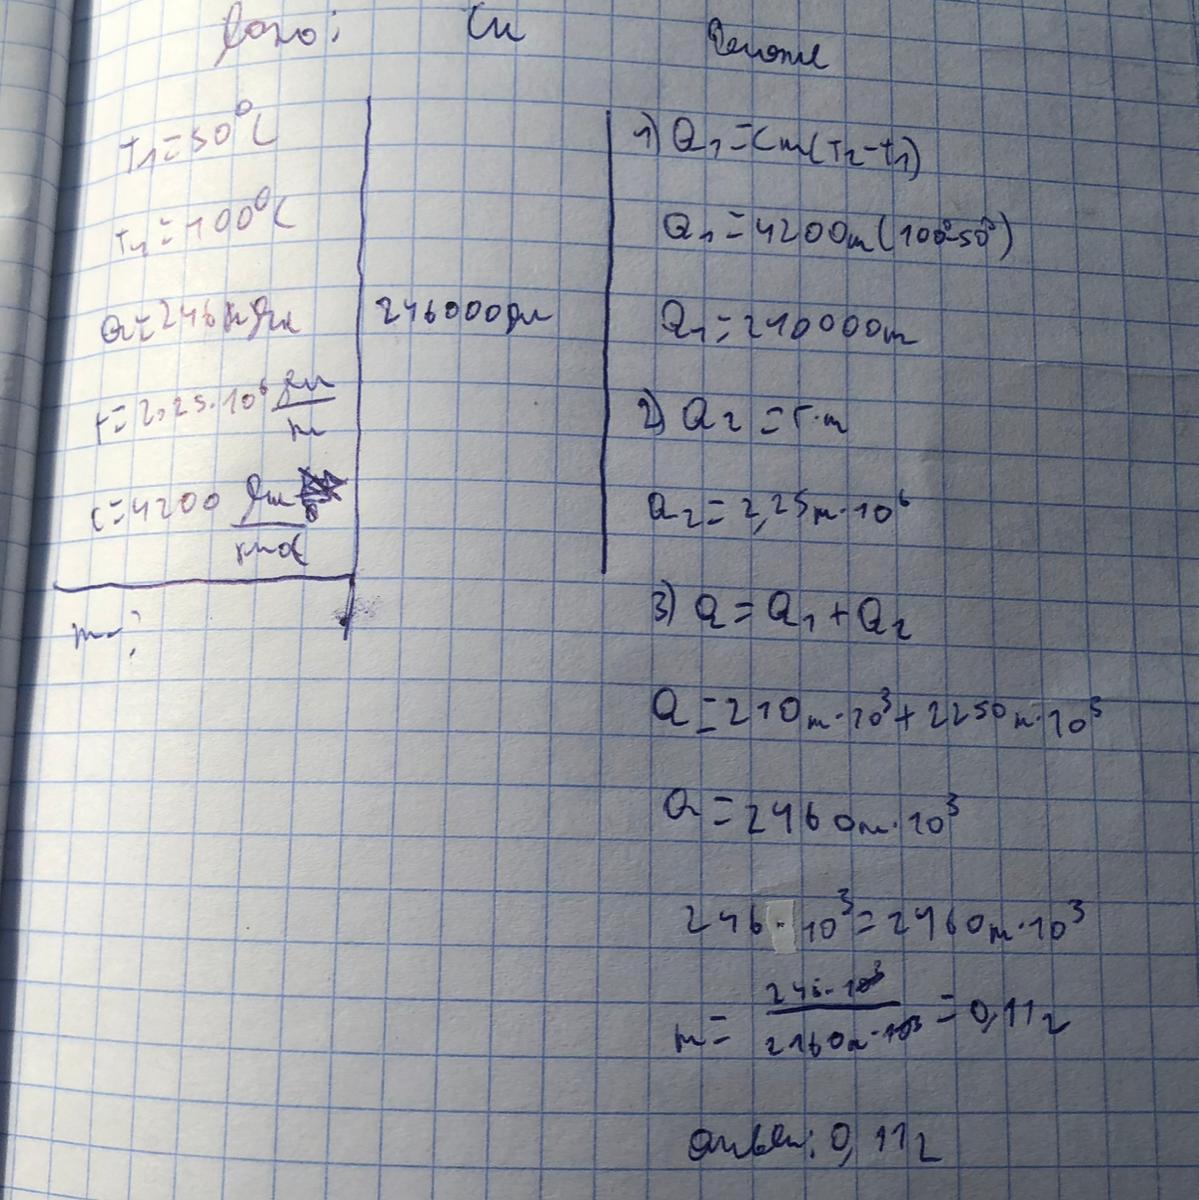 Дано: Си Решение
t₁=50°C
t₂=100°C
Q=246кДж 246000Дж
r=2,25·10⁶ Дж/кг
c=4200 Дж/кг°C
m-?
1) Q₁=cm(t₂-t₁)
Q₁=4200m(100°-50°)
Q₁=210000m
2) Q₂=r·m
Q₂=2,25m·10⁶
3) Q=Q₁+Q₂
Q=210m·10³+2250m·10³
Q=2460m·10³
246·10³=2460m·10³
m= 246·10³/2460m·10³ =0,11г
Ответ: 0,11г